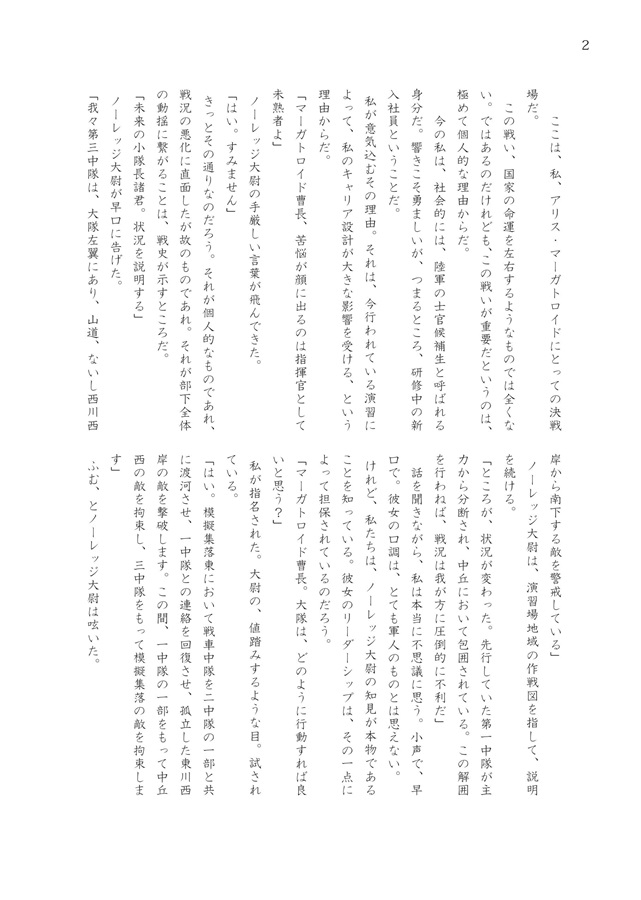 2
ここは、私、アリス・マーガトロイドにとっての決戦
場だ。
この戦い、国家の命運を左右するようなものでは全くな
い。ではあるのだけれども、この戦いが重要だというのは、
極めて個人的な理由からだ。
今の私は、社会的には、陸軍の士官候補生と呼ばれる
身分だ。響きこそ勇ましいが、つまるところ、研修中の新
入社員ということだ。
私が意気込むその理由。それは、今行われている演習に
よって、私のキャリア設計が大きな影響を受ける、という
理由からだ。
「マーガトロイド曹長、苦悩が顔に出るのは指揮官として
未熟者よ」
ノーレッジ大尉の手厳しい言葉が飛んできた。
「はい。すみません」
きっとその通りなのだろう。それが個人的なものであれ、
戦況の悪化に直面したが故のものであれ。それが部下全体
の動揺に繋がることは、戦史が示すところだ。
「未来の小隊長諸君。状況を説明する」
ノーレッジ大尉が早口に告げた。
「我々第三中隊は、大隊左翼にあり、山道、ないし西川西
岸から南下する敵を警戒している」
ノーレッジ大尉は、演習場地域の作戦図を指して、説明
を続ける。
「ところが、状況が変わった。先行していた第一中隊が主
力から分断され、中丘において包囲されている。この解囲
を行わねば、戦況は我が方に圧倒的に不利だ」
話を聞きながら、私は本当に不思議に思う。小声で、早
口で。彼女の口調は、とても軍人のものとは思えない。
けれど、私たちは、ノーレッジ大尉の知見が本物である
ことを知っている。彼女のリーダーシップは、その一点に
よって担保されているのだろう。
「マーガトロイド曹長。大隊は、どのように行動すれば良
いと思う？」
私が指名された。大尉の、値踏みするような目。試され
ている。
「はい。模擬集落東において戦車中隊を二中隊の一部と共
に渡河させ、一中隊との連絡を回復させ、孤立した東川西
岸の敵を撃破します。この間、一中隊の一部をもって中丘
西の敵を拘束し、三中隊をもって模擬集落の敵を拘束しま
す」
ふむ、とノーレッジ大尉は呟いた。